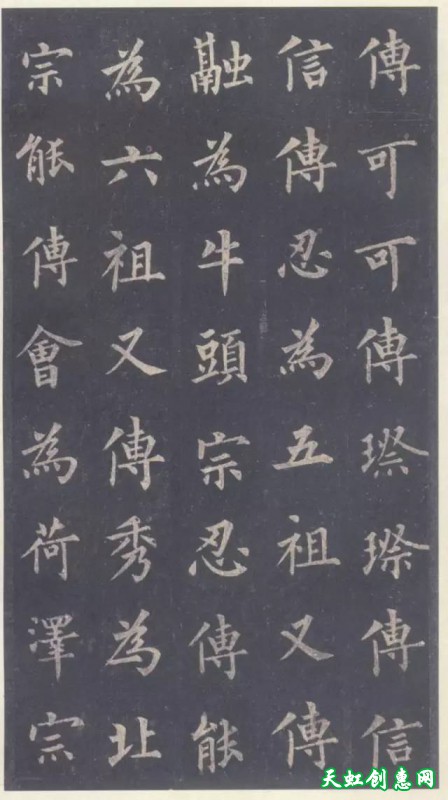 傳可可傳璨璨傳信
信傳忍為五祖又傳
融為牛頭宗忍傳能
為六祖又傳秀為北
宗能傳會為荷澤宗
天虹创惠网